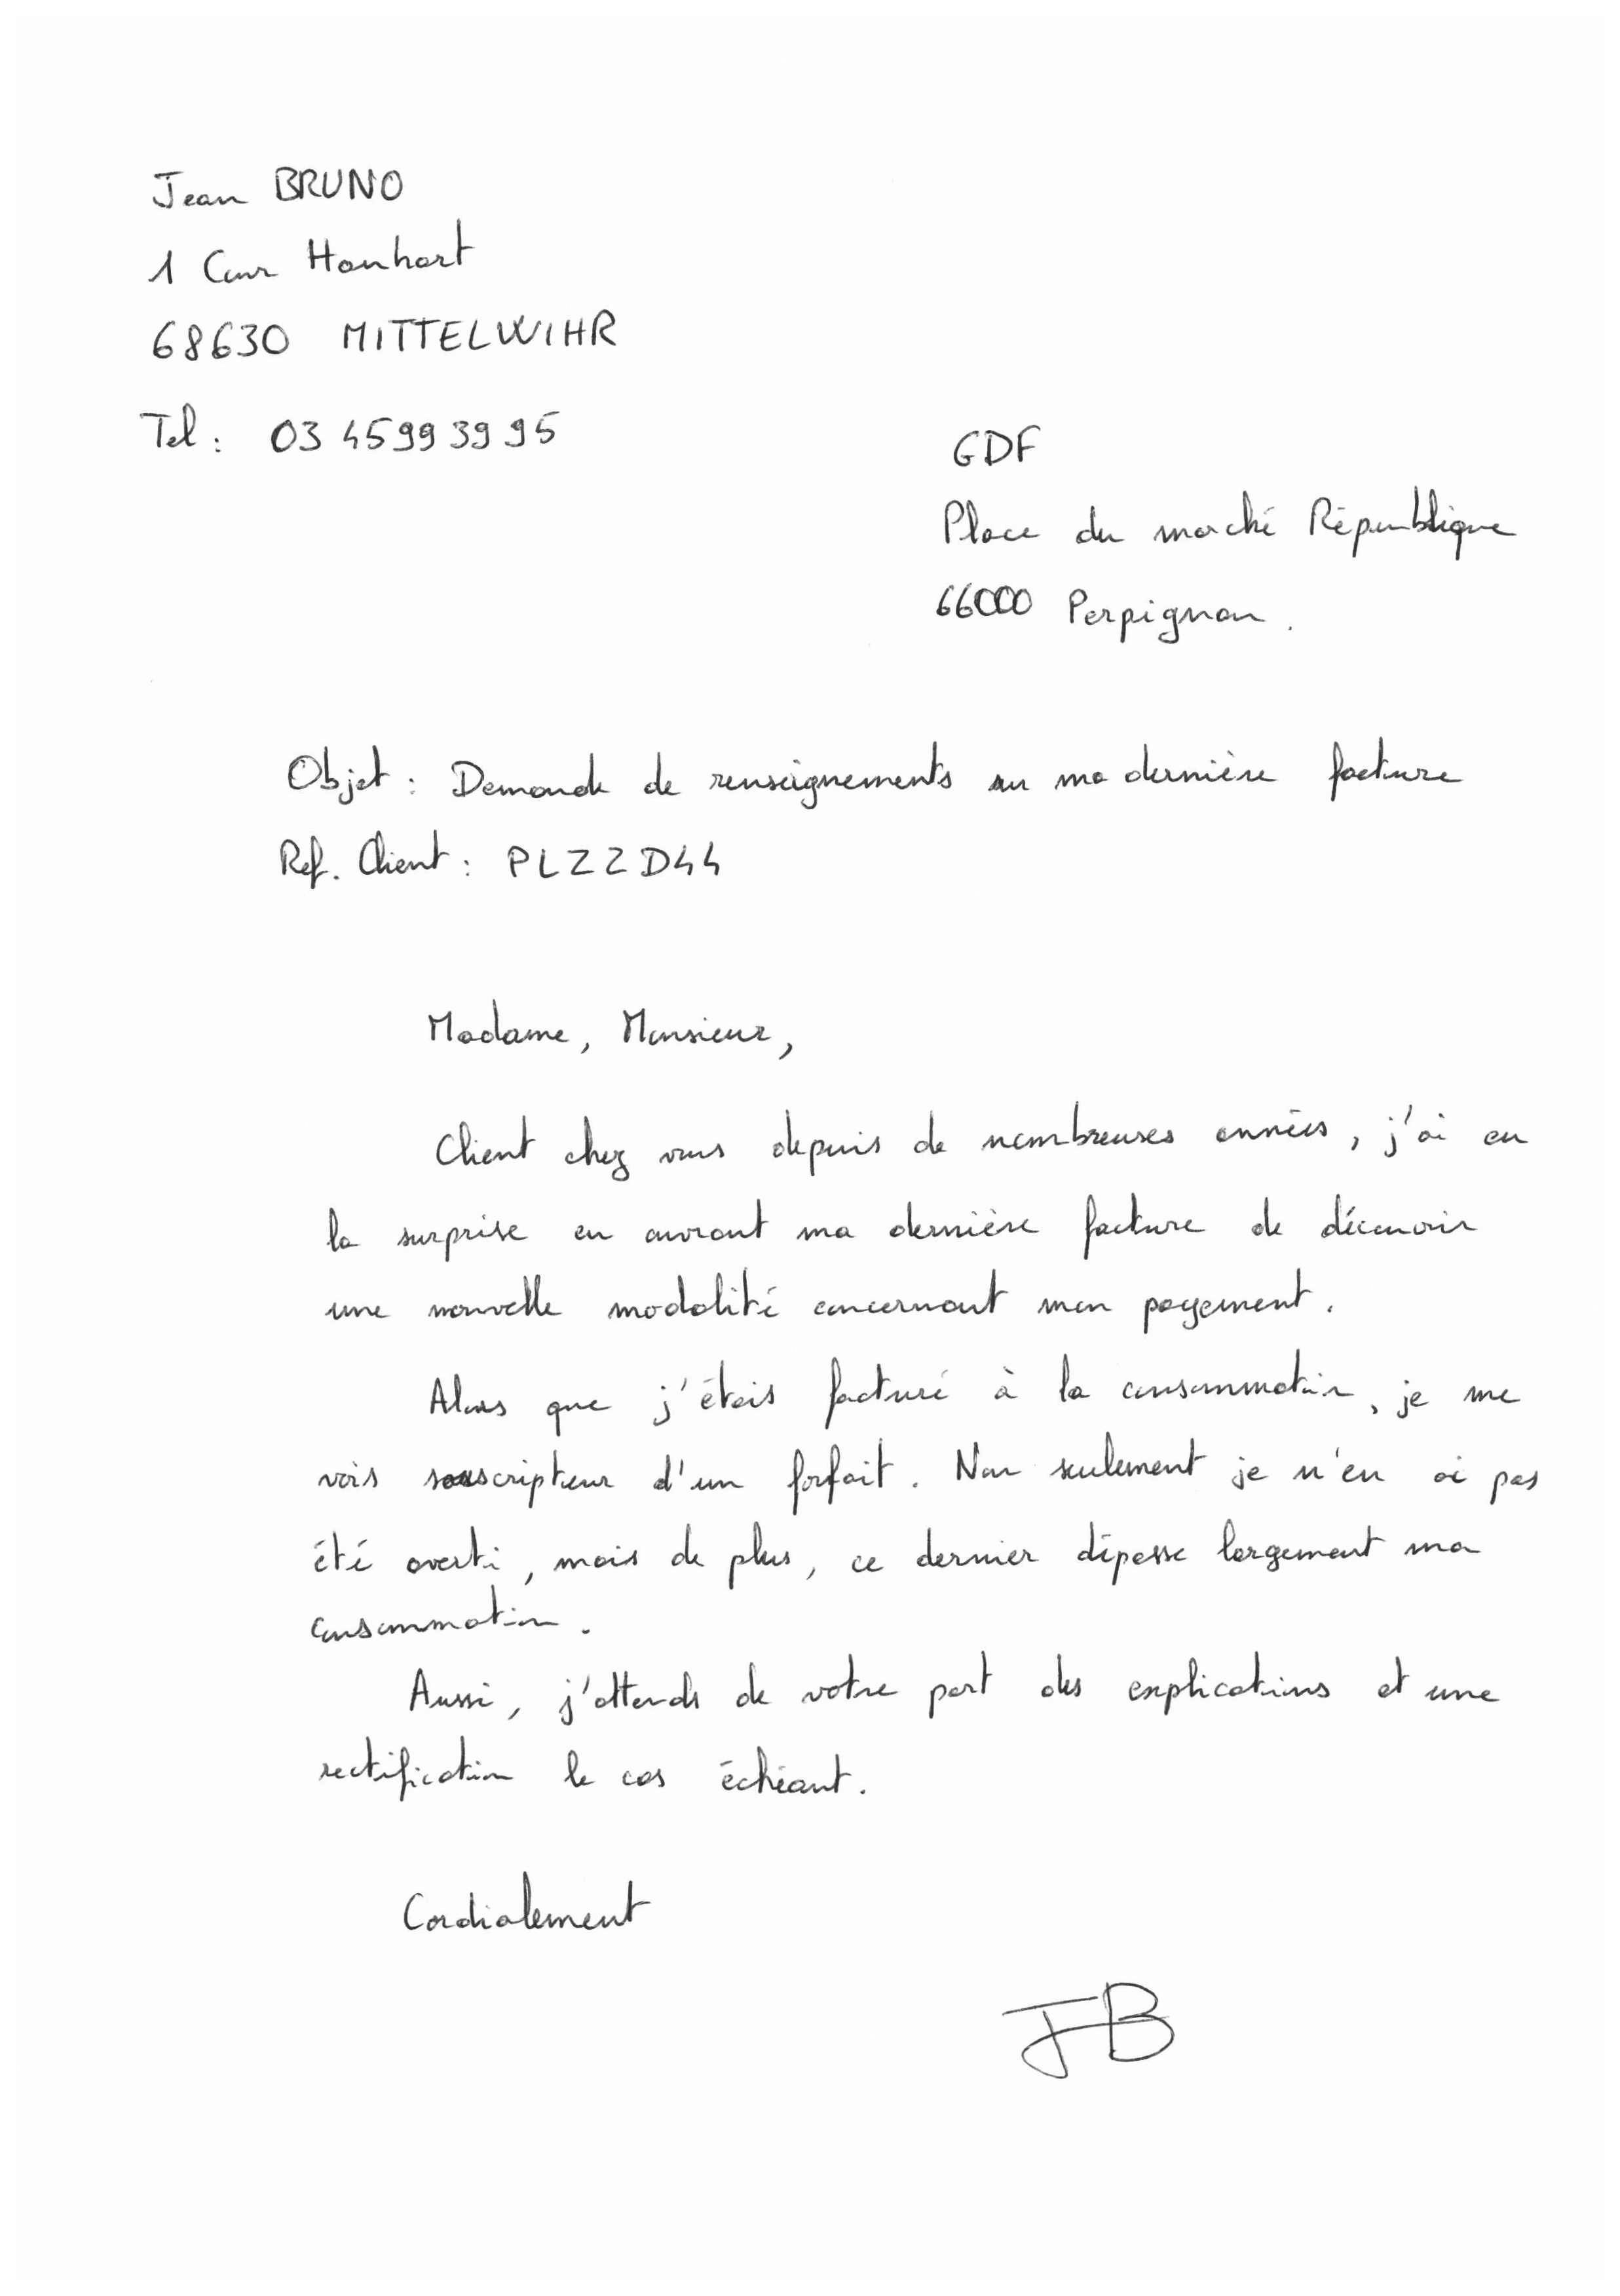 Jean BRUNO
1 Cour Hanhart
68630 MITTELWIHR
Tel : 03 45 99 39 95
GDF
Place du marché République
66000 Perpignan.
Objet : Demande de renseignements sur ma dernière facture
Ref. Client : PLZZD44
Madame, Monsieur,
Client chez vous depuis de nombreuses années, j'ai eu
la surprise en ouvrant ma dernière facture de découvrir
une nouvelle modalité concernant mon payement.
Alors que j'étais facturé à la consommation, je me
vois souscripteur d'un forfait. Non seulement je n'en ai pas
été averti, mais de plus, ce dernier dépasse largement ma
consommation.
Aussi, j'attends de votre part des explications et une
rectification le cas échéant.
Cordialement
JB